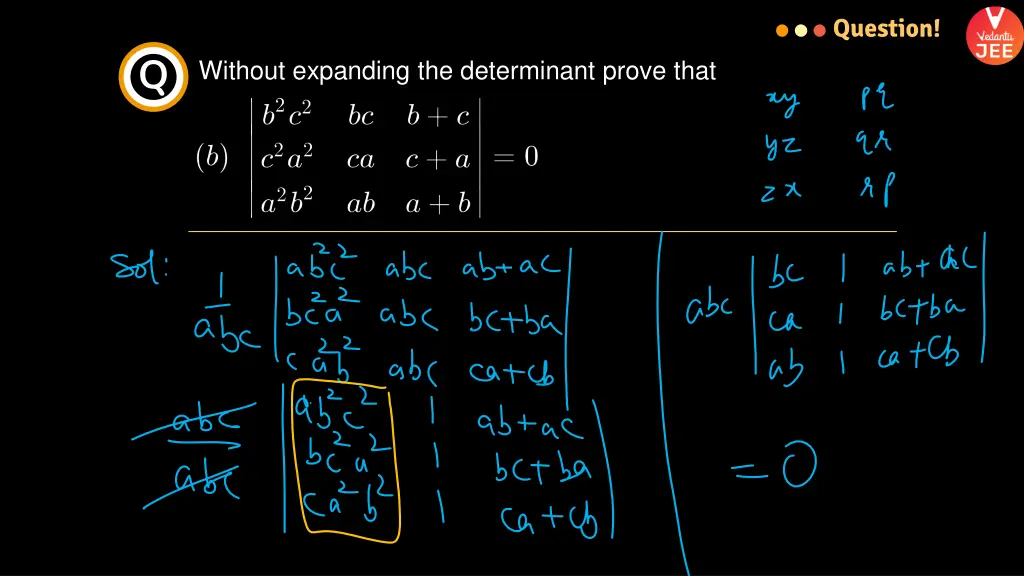 Question!
Vedantu
JEE
Q Without expanding the determinant prove that
(b) | b²c² bc b + c |
| c²a² ca c + a | = 0
| a²b² ab a + b |
xy pq
yz qr
zx rp
Sol:
1/abc | ab²c² abc ab+ac |
| bc²a² abc bc+ba |
| ca²b² abc ca+cb |
abc/abc | ab²c² 1 ab+ac |
| bc²a² 1 bc+ba |
| ca²b² 1 ca+cb |
abc | bc 1 ab+ac |
| ca 1 bc+ba |
| ab 1 ca+cb |
= 0